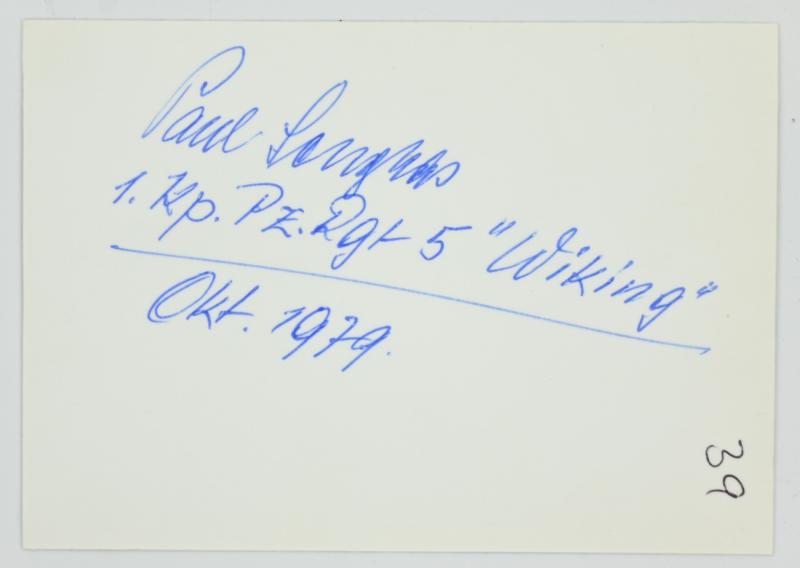 Paul
1. Kp. Pz. Rgt 5 "Wiking"
Okt. 1979.
39